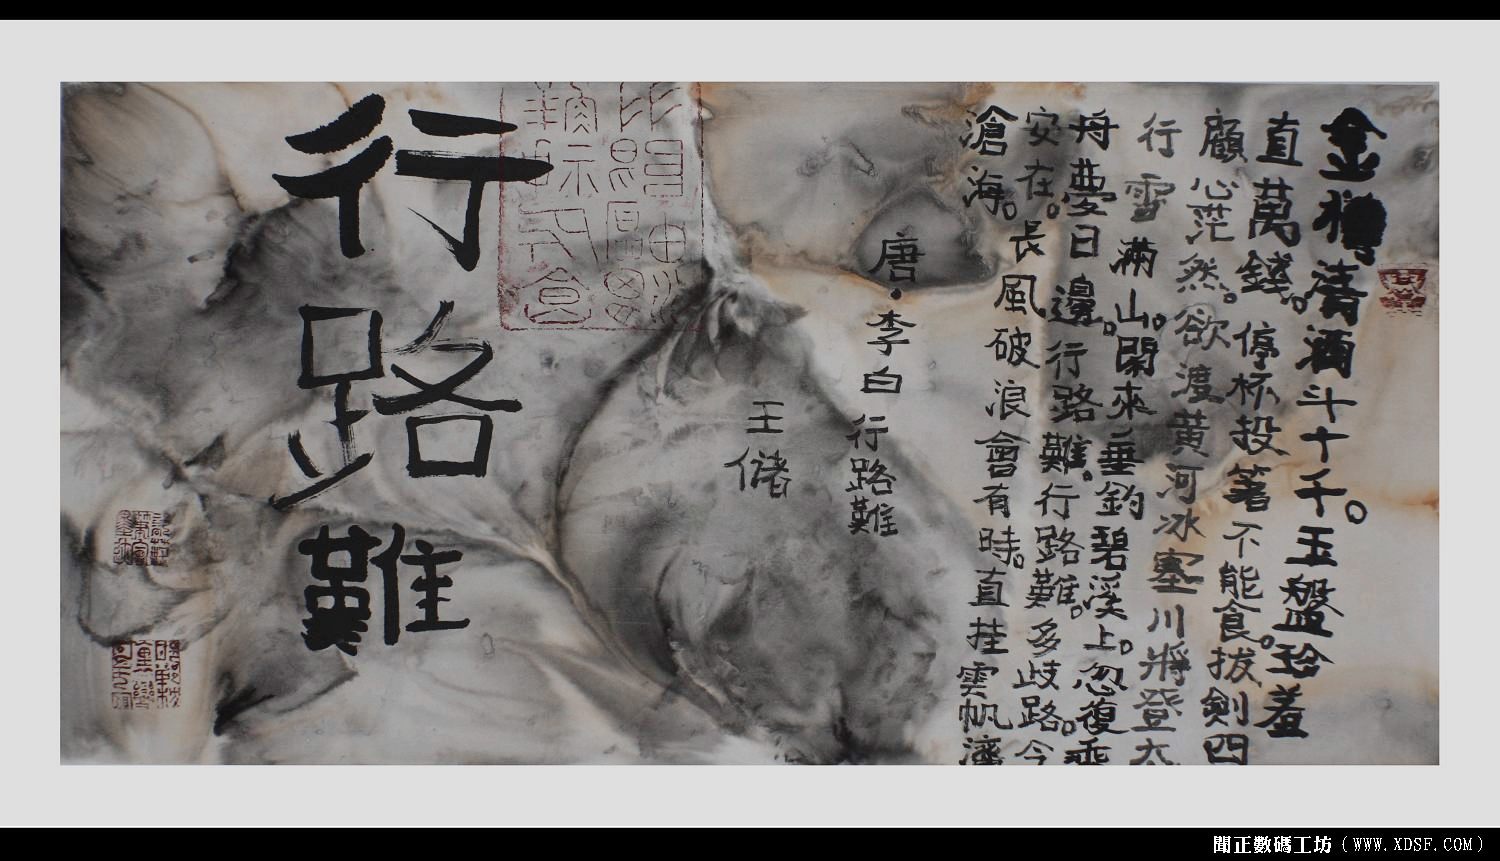 金樽清酒斗十千。玉盤珍羞
直萬錢。停杯投箸不能食。拔劍四
顧心茫然。欲渡黄河冰塞川將登太
行雪滿山。閑來垂釣碧溪上。忽復乘
舟夢日邊。行路難。行路難。多歧路。今
安在。長風破浪會有時。直挂雲帆濟
滄海。
唐·李白 行路難
王
行路難
聞正數碼工坊（WWW.XDSF.COM）